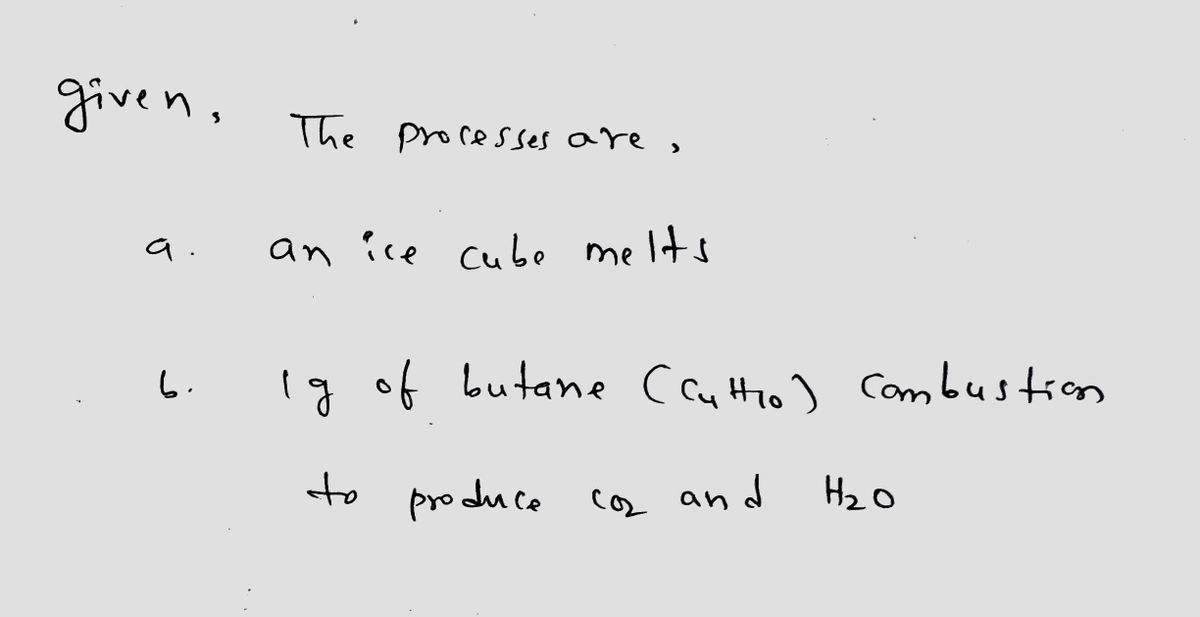 given, The processes are,
a. an ice cube melts
b. 1g of butane (C4H10) combustion
to produce CO2 and H2O